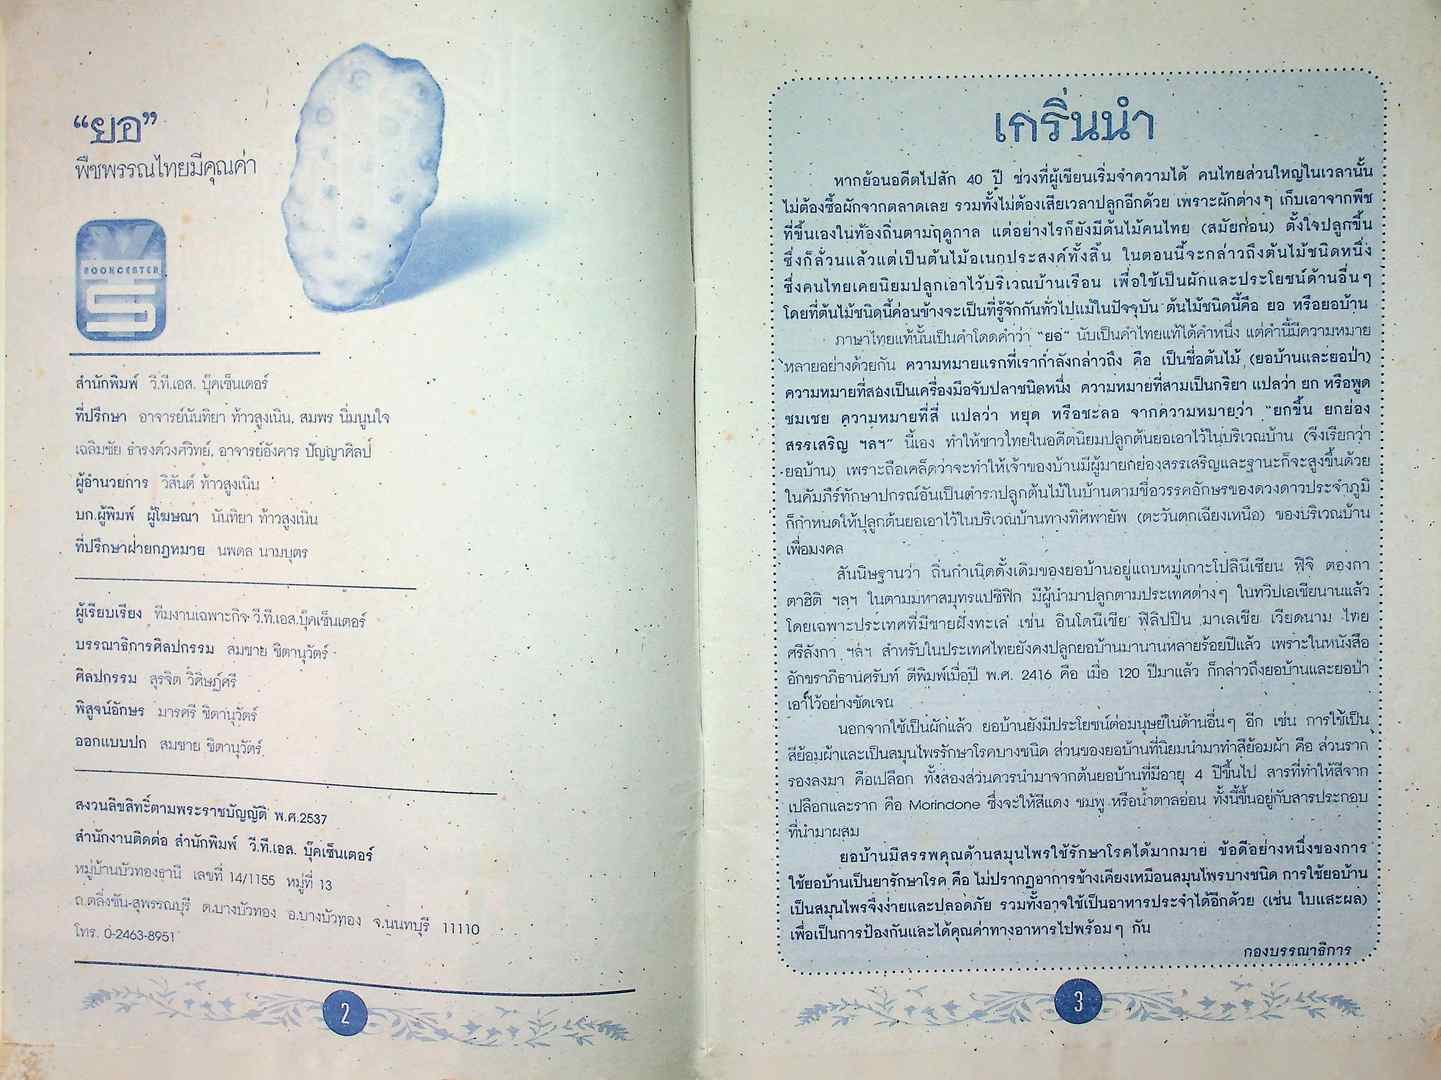 “ยอ”
พืชพรรณไทยมีคุณค่า
BOOKCENTER
S
สำนักพิมพ์ วี.ที.เอส. บุ๊คเซ็นเตอร์
ที่ปรึกษา อาจารย์นันทิยา ท้าวสูงเนิน, สมพร นิ่มนูนใจ
เฉลิมชัย ธำรงค์วงศ์วิทย์, อาจารย์อังคาร ปัญญาศิลป์
ผู้อำนวยการ วิสันต์ ท้าวสูงเนิน
บก.ผู้พิมพ์ ผู้โฆษณา นันทิยา ท้าวสูงเนิน
ที่ปรึกษาฝ่ายกฎหมาย นพดล นามบุตร
ผู้เรียบเรียง ทีมงานเฉพาะกิจ วี.ที.เอส.บุ๊คเซ็นเตอร์
บรรณาธิการศิลปกรรม สมชาย ชิตานุวัตร์
ศิลปกรรม สุรจิต วิศิษฎ์ศรี
พิสูจน์อักษร มารศรี ชิตานุวัตร์
ออกแบบปก สมชาย ชิตานุวัตร์
สงวนลิขสิทธิ์ตามพระราชบัญญัติ พ.ศ.2537
สำนักงานติดต่อ สำนักพิมพ์ วี.ที.เอส. บุ๊คเซ็นเตอร์
หมู่บ้านบัวทองธานี เลขที่ 14/1155 หมู่ที่ 13
ถ.ตลิ่งชัน-สุพรรณบุรี ต.บางบัวทอง อ.บางบัวทอง จ.นนทบุรี 11110
โทร. 0-2463-8951
2
เกริ่นนำ
หากย้อนอดีตไปสัก 40 ปี ช่วงที่ผู้เขียนเริ่มจำความได้ คนไทยส่วนใหญ่ในเวลานั้น
ไม่ต้องซื้อผักจากตลาดเลย รวมทั้งไม่ต้องเสียเวลาปลูกอีกด้วย เพราะผักต่างๆ เก็บเอาจากพืช
ที่ขึ้นเองในท้องถิ่นตามฤดูกาล แต่อย่างไรก็ยังมีต้นไม้คนไทย (สมัยก่อน) ตั้งใจปลูกขึ้น
ซึ่งก็ล้วนแล้วแต่เป็นต้นไม้อเนกประสงค์ทั้งสิ้น ในตอนนี้จะกล่าวถึงต้นไม้ชนิดหนึ่ง
ซึ่งคนไทยเคยนิยมปลูกเอาไว้บริเวณบ้านเรือน เพื่อใช้เป็นผักและประโยชน์ด้านอื่นๆ
โดยที่ต้นไม้ชนิดนี้ค่อนข้างจะเป็นที่รู้จักกันทั่วไปแม้ในปัจจุบัน ต้นไม้ชนิดนี้คือ ยอ หรือยอบ้าน
ภาษาไทยแท้นั้นเป็นคำโดดคำว่า “ยอ” นับเป็นคำไทยแท้ได้คำหนึ่ง แต่คำนี้มีความหมาย
หลายอย่างด้วยกัน ความหมายแรกที่เรากำลังกล่าวถึง คือ เป็นชื่อต้นไม้ (ยอบ้านและยอป่า)
ความหมายที่สองเป็นเครื่องมือจับปลาชนิดหนึ่ง ความหมายที่สามเป็นกริยา แปลว่า ยก หรือพูด
ชมเชย ความหมายที่สี่ แปลว่า หยุด หรือชะลอ จากความหมายว่า “ยกขึ้น ยกย่อง
สรรเสริญ ฯลฯ” นี้เอง ทำให้ชาวไทยในอดีตนิยมปลูกต้นยอเอาไว้ในบริเวณบ้าน (จึงเรียกว่า
ยอบ้าน) เพราะถือเคล็ดว่าจะทำให้เจ้าของบ้านมีผู้มายกย่องสรรเสริญและฐานะก็จะสูงขึ้นด้วย
ในคัมภีร์ทักษาปกรณ์อันเป็นตำราปลูกต้นไม้ในบ้านตามชื่อวรรคอักษรของดวงดาวประจำภูมิ
ก็กำหนดให้ปลูกต้นยอเอาไว้ในบริเวณบ้านทางทิศพายัพ (ตะวันตกเฉียงเหนือ) ของบริเวณบ้าน
เพื่อมงคล
สันนิษฐานว่า ถิ่นกำเนิดดั้งเดิมของยอบ้านอยู่แถบหมู่เกาะโปลินีเซียน ฟิจิ ตองกา
ตาฮิติ ฯลฯ ในตามมหาสมุทรแปซิฟิก มีผู้นำมาปลูกตามประเทศต่างๆ ในทวีปเอเชียนานแล้ว
โดยเฉพาะประเทศที่มีชายฝั่งทะเล เช่น อินโดนีเซีย ฟิลิปปิน มาเลเซีย เวียดนาม ไทย
ศรีลังกา ฯลฯ สำหรับในประเทศไทยยังคงปลูกยอบ้านมานานหลายร้อยปีแล้ว เพราะในหนังสือ
อักขราภิธานศรับท์ ตีพิมพ์เมื่อปี พ.ศ. 2416 คือ เมื่อ 120 ปีมาแล้ว ก็กล่าวถึงยอบ้านและยอป่า
เอาไว้อย่างชัดเจน
นอกจากใช้เป็นผักแล้ว ยอบ้านยังมีประโยชน์ต่อมนุษย์ในด้านอื่นๆ อีก เช่น การใช้เป็น
สีย้อมผ้าและเป็นสมุนไพรรักษาโรคบางชนิด ส่วนของยอบ้านที่นิยมนำมาทำสีย้อมผ้า คือ ส่วนราก
รองลงมา คือเปลือก ทั้งสองส่วนควรนำมาจากต้นยอบ้านที่มีอายุ 4 ปีขึ้นไป สารที่ทำให้สีจาก
เปลือกและราก คือ Morindone ซึ่งจะให้สีแดง ชมพู หรือน้ำตาลอ่อน ทั้งนี้ขึ้นอยู่กับสารประกอบ
ที่นำมาผสม
ยอบ้านมีสรรพคุณด้านสมุนไพรใช้รักษาโรคได้มากมาย ข้อดีอย่างหนึ่งของการ
ใช้ยอบ้านเป็นยารักษาโรค คือ ไม่ปรากฏอาการข้างเคียงเหมือนสมุนไพรบางชนิด การใช้ยอบ้าน
เป็นสมุนไพรจึงง่ายและปลอดภัย รวมทั้งอาจใช้เป็นอาหารประจำได้อีกด้วย (เช่น ใบและผล)
เพื่อเป็นการป้องกันและได้คุณค่าทางอาหารไปพร้อมๆ กัน
กองบรรณาธิการ
3